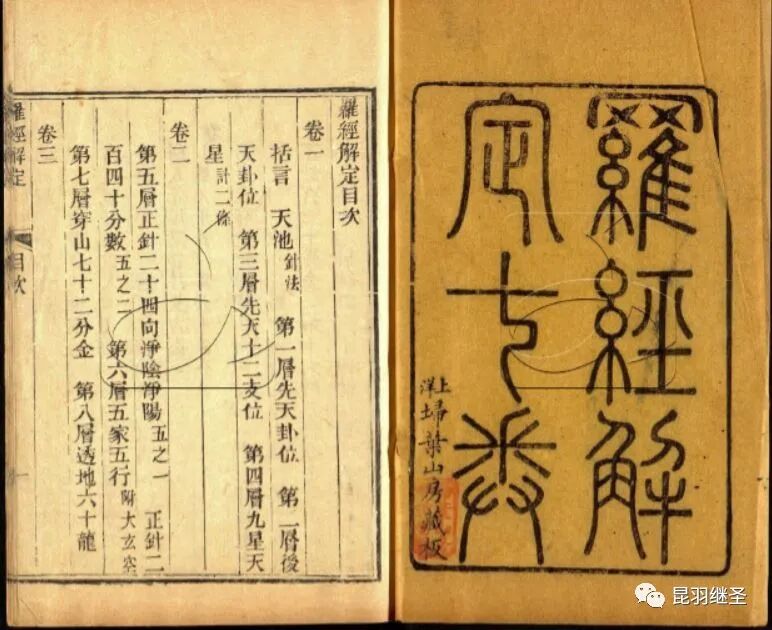 羅經解
定七卷
上洋埽葉山房藏板
羅經解定目次
卷一
括言 天池針法 第一層先天卦位 第二層後
天卦位 第三層先天十二支位 第四層九星天
星計二條
卷二
第五層正針二十四向淨陰淨陽五之一 正針二
百四十分數五之二 第六層五家五行附大玄空
第七層穿山七十二分金 第八層透地六十龍
卷三
羅經解定 目次 一
昆羽继圣